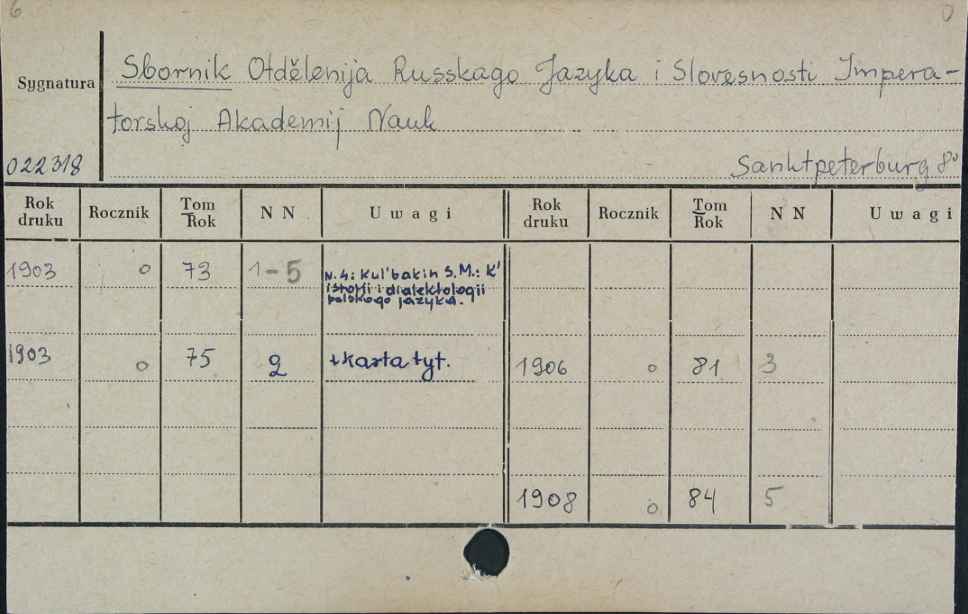 6 0
Sbornik Otdělenija Russkago Jazyka i Slovesnosti Impera-
Sygnatura
torskoj Akademij Nauk
022318 Sanktpeterburg 8º
Rok druku Rocznik Tom Rok N N Uwagi Rok druku Rocznik Tom Rok N N Uwagi
1903 0 73 1-5 N. 4: Kul'bakin S.M.: K'
istorii i dialektologii
polskogo jazyka.
1903 0 75 2 + karta tyt. 1906 0 81 3
1908 0 84 5